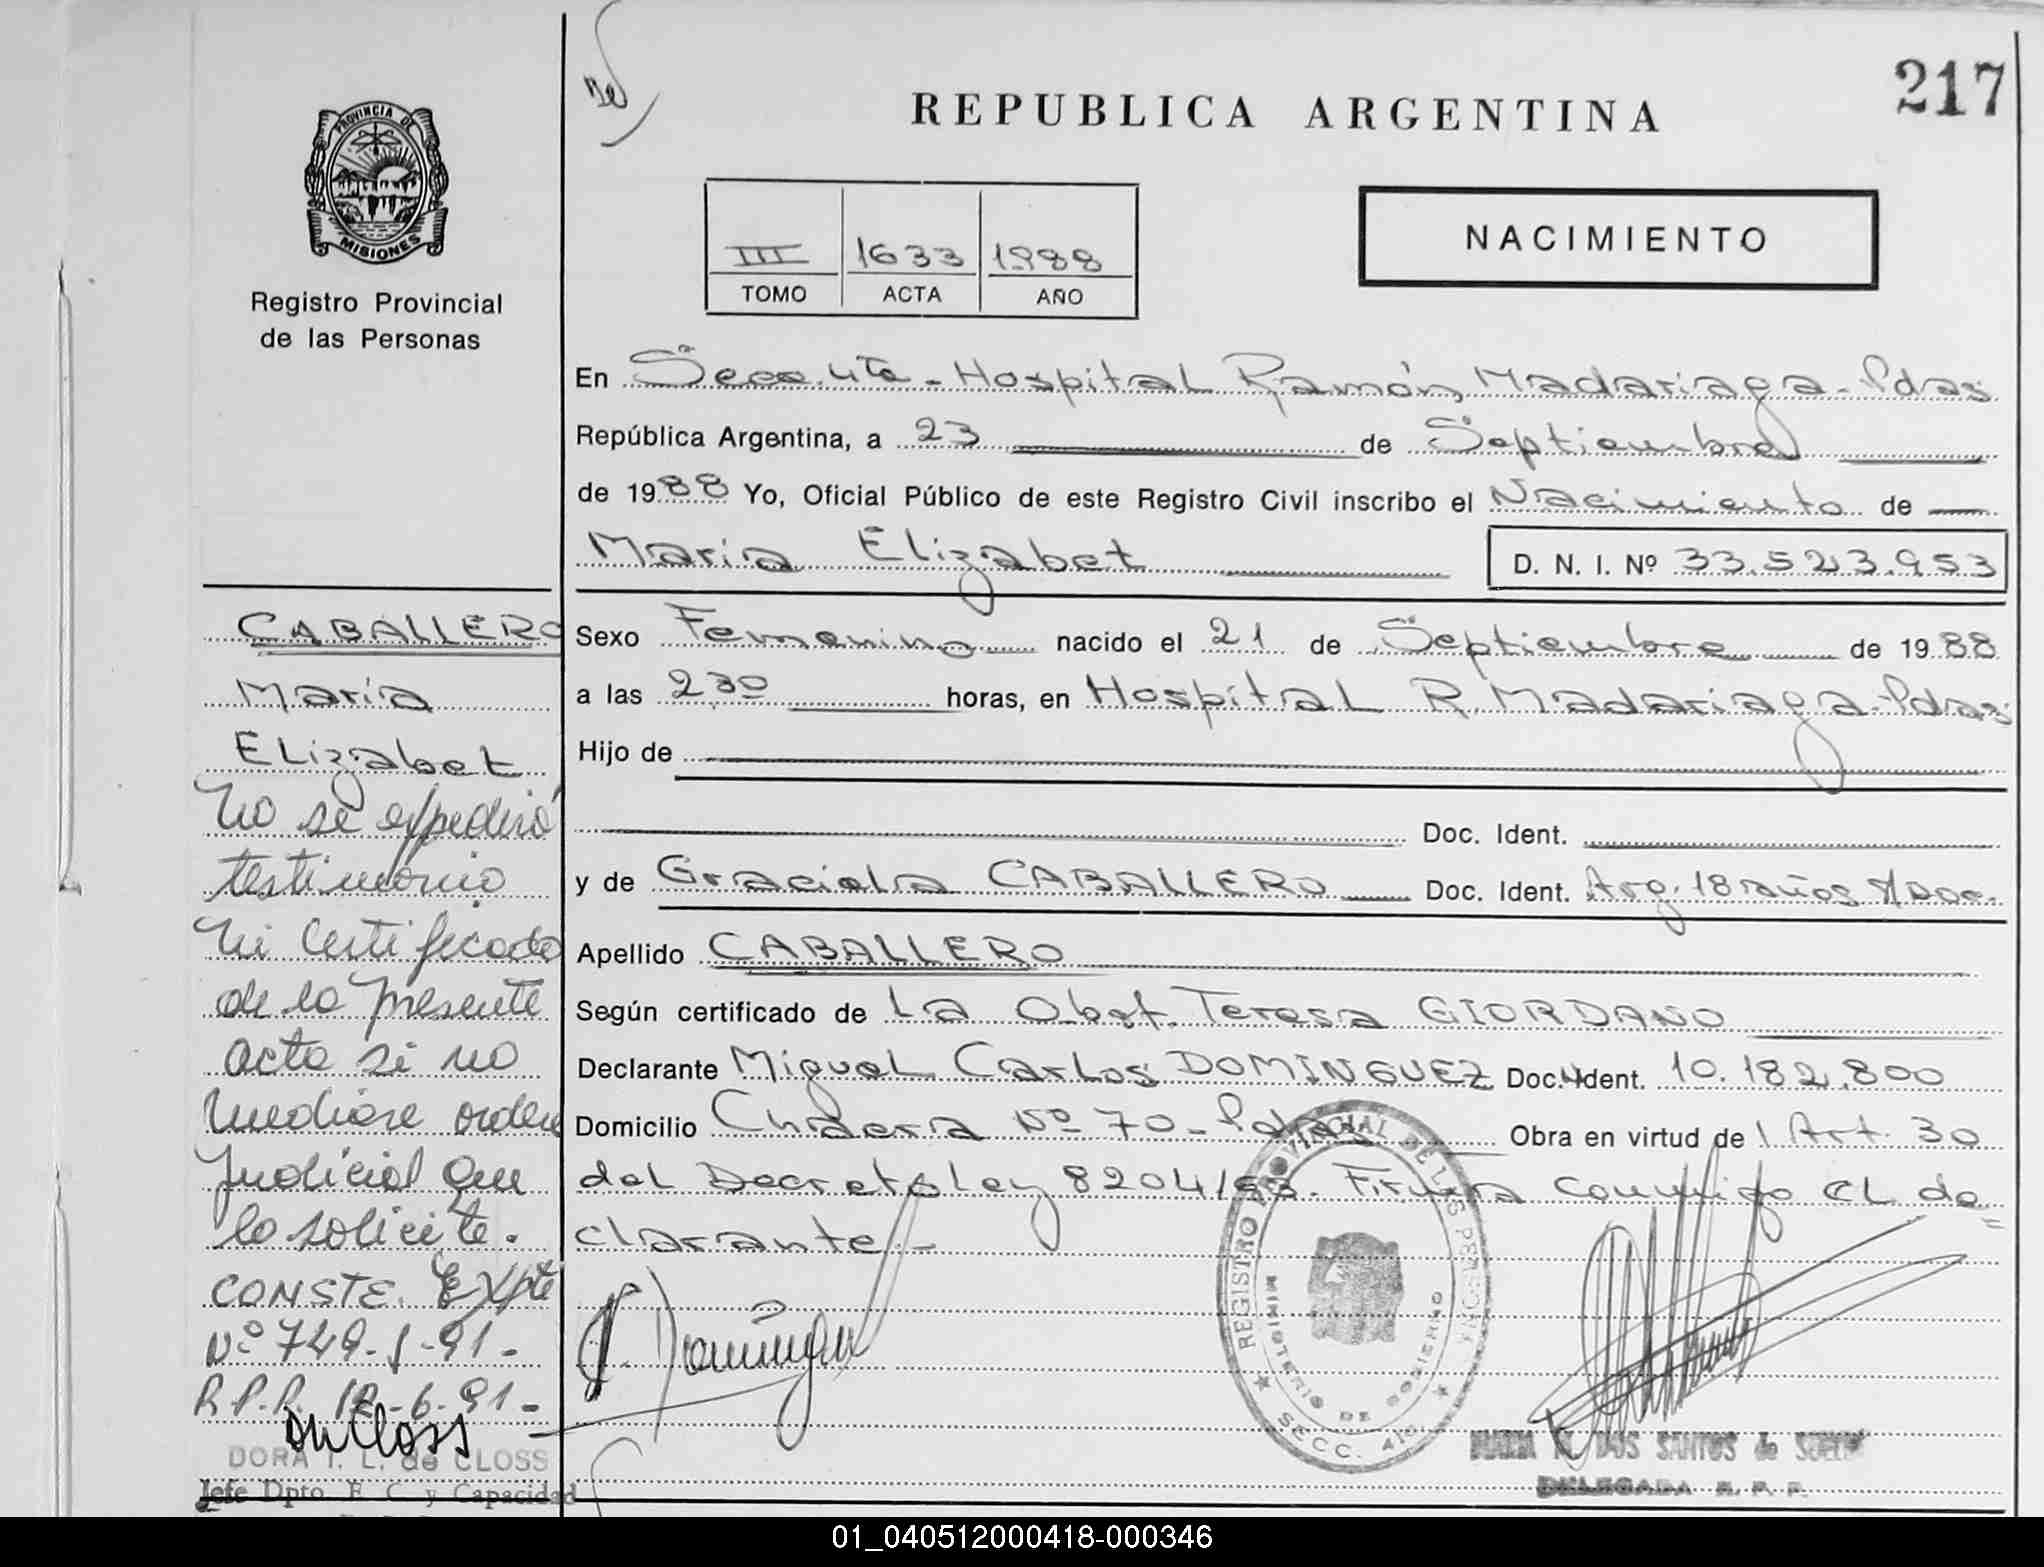 217
REPUBLICA ARGENTINA
PROVINCIA DE
MISIONES
Registro Provincial
de las Personas
III 1633 1988
TOMO ACTA AÑO
NACIMIENTO
En Secc. 4ta - Hospital Ramón Madariaga - Pdas
República Argentina, a 23 de Septiembre
de 1988 Yo, Oficial Público de este Registro Civil inscribo el Nacimiento de
Maria Elizabet D. N. I. Nº 33.523.953
Sexo Femenino nacido el 21 de Septiembre de 1988
a las 2,30 horas, en Hospital R. Madariaga - Pdas
Hijo de
Doc. Ident.
y de Graciela CABALLERO Doc. Ident. Arg. 18 años s/Doc.
Apellido CABALLERO
Según certificado de La Obst. Teresa GIORDANO
Declarante Miguel Carlos DOMINGUEZ Doc. Ident. 10.182.800
Domicilio Nº 70 - Pdas Obra en virtud de l Art. 30
del Decreto Ley 8204/63. Firma conmigo el de
clarante.-
CABALLERO
María
Elizabet
No se expedirá
testimonio
ni certificado
de la presente
acta si no
mediare orden
Judicial que
lo solicite.
CONSTE. Expte
Nº 749-J-91-
R.P.P. 12-6-91-
DORA I. L. de CLOSS
Jefe Dpto. E. C. y Capacidad
REGISTRO PROVINCIAL DE LAS PERSONAS
MINISTERIO DE GOBIERNO
SECC. 4ta.
MARIA DOS SANTOS de
DELEGADA R. P. P.
01_040512000418-000346